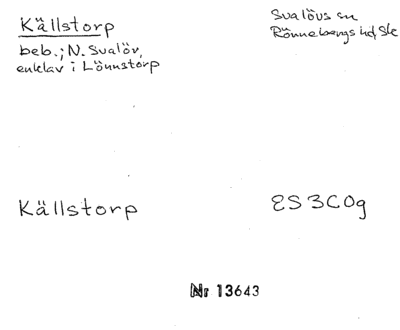 Källstorp
beb.; N. Svalöv,
enklav i Lönnstorp
Svalövs sn
Rönnebergs hd, Sk
Källstorp
ES 3C0g
Nr 13643